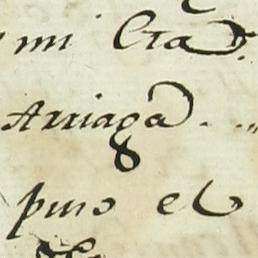 mi Cta
Arriaga.
puso el